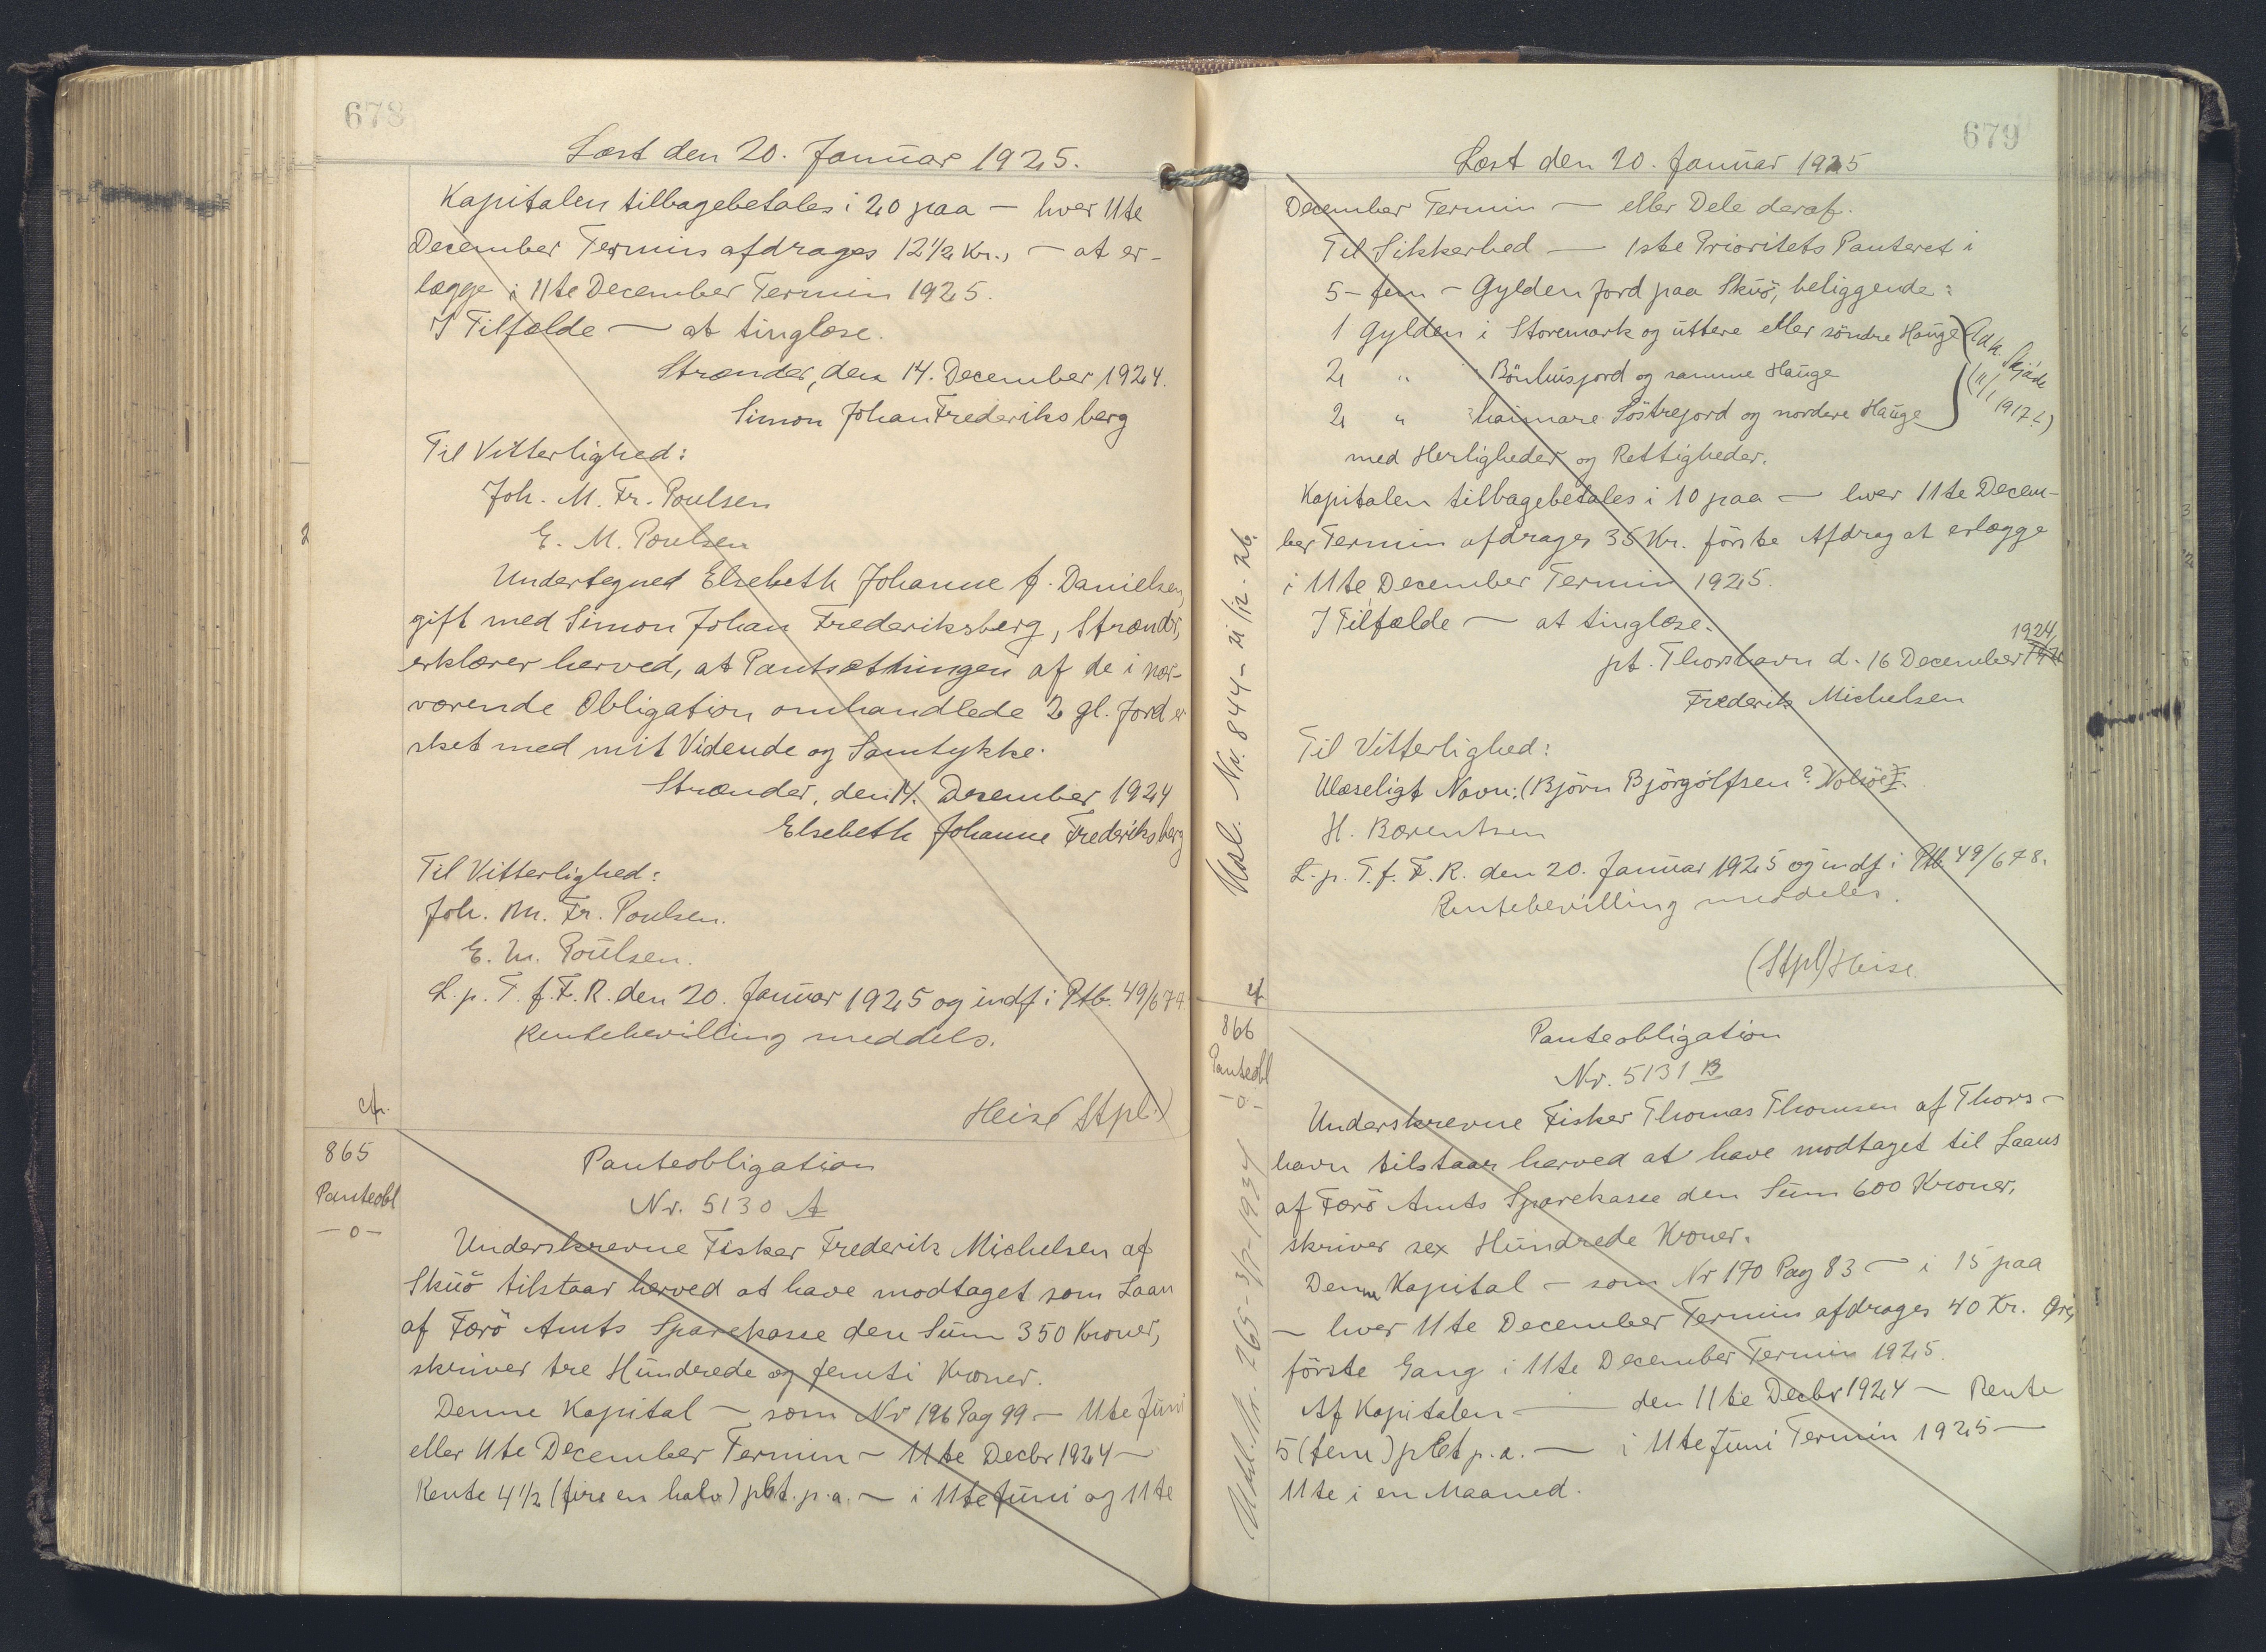 678
Læst den 20. Januar 1925.
Kapitalen tilbagebetales i 20 paa — hver 11te
December Termin afdrages 12½ Kr., — at er-
lægge i 11te December Termin 1925.
I Tilfælde — at tinglæse.
Strænder, den 14. December 1924.
Simon Johan Frederiksberg
Til Vitterlighed:
Joh. M. Fr. Poulsen
E. M. Poulsen
2
Undertegned Elsebeth Johanne f. Danielsen,
gift med Simon Johan Frederiksberg, Strændr,
erklærer herved, at Pantsætningen af de i nær-
værende Obligation omhandlede 2 gl. Jord er
sket med mit Vidende og Samtykke.
Strænder, den 14. December 1924
Elsebeth Johanne Frederiksberg
Til Vitterlighed:
Joh. M. Fr. Poulsen.
E. M. Poulsen.
L. p. T. f. F. R. den 20. Januar 1925 og indf i Ptb. 49/677
Rentebevilling meddels.
Heise (Stpl.)
cfr.
865
Panteobl
—o—
Panteobligation
Nr. 5130 A
Underskrevne Fisker Frederik Michelsen af
Skuö tilstaar herved at have modtaget som Laan
af Færö Amts Sparekasse den Sum 350 Kroner,
skriver tre Hundrede og femti Kroner.
Denne Kapital — som Nr 196 Pag 99 — 11te Juni
eller 11te December Termin — 11te Decbr 1924 —
Rente 4½ (fire en halv) pCt. p. a. — i 11te Juni og 11te
679
Læst den 20. Januar 1925
December Termin — eller Dele deraf.
Til Sikkerhed — 1ste Prioritets Panteret i
5 - fem - Gylden Jord paa Skuö, beliggende:
1 Gylden i Storemark og uttere eller söndre Hauge
2 " " Bönhusjord og samme Hauge
2 " haimare Söstrejord og nordere Hauge
Adk. Skjöde
(11/1 1917.)
med Herligheder og Rettigheder.
Kapitalen tilbagebetales i 10 paa — hver 11te Decem-
ber Termin afdrages 35 Kr. förste Afdrag at erlægge
i 11te December Termin 1925.
I Tilfælde — at tinglæse.
1924,
pt. Thorshavn d. 16 December
Frederik Michelsen
Til Vitterlighed:
Ulæseligt Navn: (Björn Björgólfsen?
H. Bærentsen
L. p. T. f. F. R. den 20. Januar 1925 og indf i Ptb 49/678.
Rentebevilling meddeles.
(Stpl) Heise
Udsl. Nr. 844 - 21/12 - 26.
cf
866
Panteobl
-o-
Panteobligation
Nr. 5131 B
Underskrevne Fisker Thomas Thomsen af Thors-
havn tilstaar herved at have modtaget til Laans
af Færö Amts Sparekasse den Sum 600 Kroner,
skriver sex Hundrede Kroner.
Denne Kapital — som Nr 170 Pag 83 — i 15 paa
— hver 11te December Termin afdrages 40 Kr. Øre,
förste Gang i 11te December Termin 1925.
Af Kapitalen — den 11te Decbr 1924 — Rente
5 (fem) pCt p. a. — i 11te Juni Termin 1925 —
11te i en Maaned.
Udsl. Nr. 265 - 3/7 - 1934